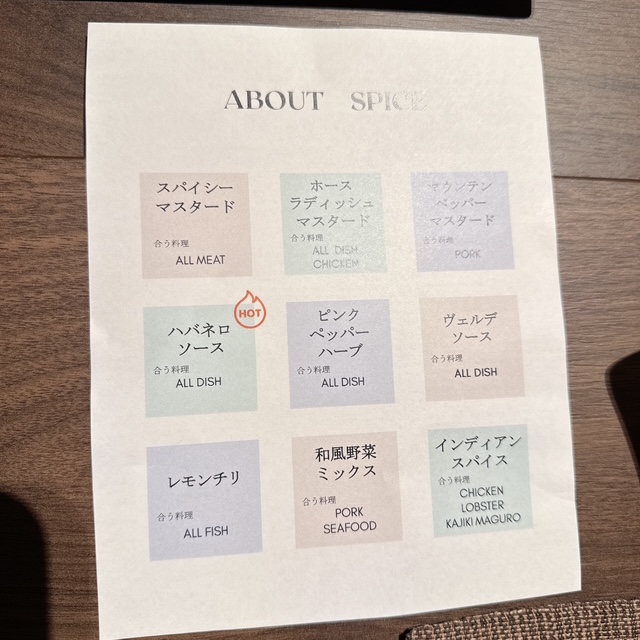 ABOUT SPICE
スパイシー
マスタード
合う料理
ALL MEAT
ホース
ラディッシュ
マスタード
合う料理
ALL DISH
CHICKEN
マウンテン
ペッパー
マスタード
合う料理
PORK
HOT
ハバネロ
ソース
合う料理
ALL DISH
ピンク
ペッパー
ハーブ
合う料理
ALL DISH
ヴェルデ
ソース
合う料理
ALL DISH
レモンチリ
合う料理
ALL FISH
和風野菜
ミックス
合う料理
PORK
SEAFOOD
インディアン
スパイス
合う料理
CHICKEN
LOBSTER
KAJIKI MAGURO